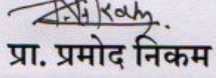 प्रा. प्रमोद निकम